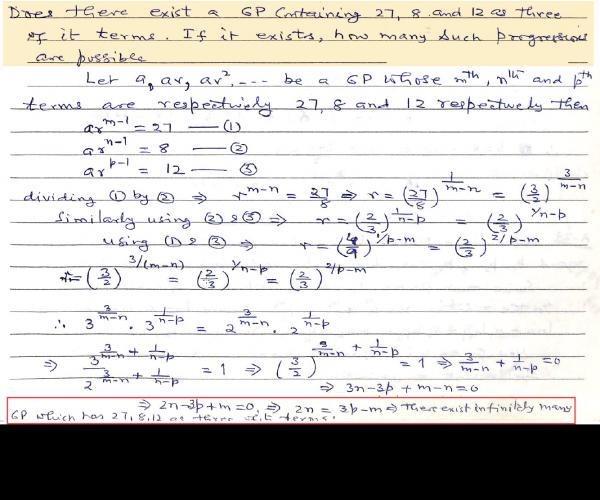 Does there exist a GP Containing 27, 8 and 12 as three
of it terms. If it exists, how many such progressions
are possible
Let a, ar, ar², --- be a GP whose mᵗʰ, nᵗʰ and pᵗʰ
terms are respectively 27, 8 and 12 respectively then
ar^{m-1} = 27 — (1)
ar^{n-1} = 8 — (2)
ar^{p-1} = 12 — (3)
dividing (1) by (2) ⇒ r^{m-n} = 27/8 ⇒ r = (27/8)^{1/m-n} = (3/2)^{3/m-n}
Similarly using (2) & (3) ⇒ r = (2/3)^{1/n-p} = (2/3)^{1/n-p}
using (1) & (3) ⇒ r = (4/9)^{1/p-m} = (2/3)^{2/p-m}
r = (3/2)^{3/(m-n)} = (2/3)^{1/n-p} = (2/3)^{2/p-m}
∴ 3^{3/m-n} · 3^{1/n-p} = 2^{3/m-n} · 2^{1/n-p}
⇒ 3^{3/m-n + 1/n-p} / 2^{3/m-n + 1/n-p} = 1 ⇒ (3/2)^{3/m-n + 1/n-p} = 1 ⇒ 3/m-n + 1/n-p = 0
⇒ 3n-3p + m-n = 0
⇒ 2n-3p+m = 0, ⇒ 2n = 3p-m ⇒ There exist infinitely many
GP which has 27, 8, 12 as three of it terms.